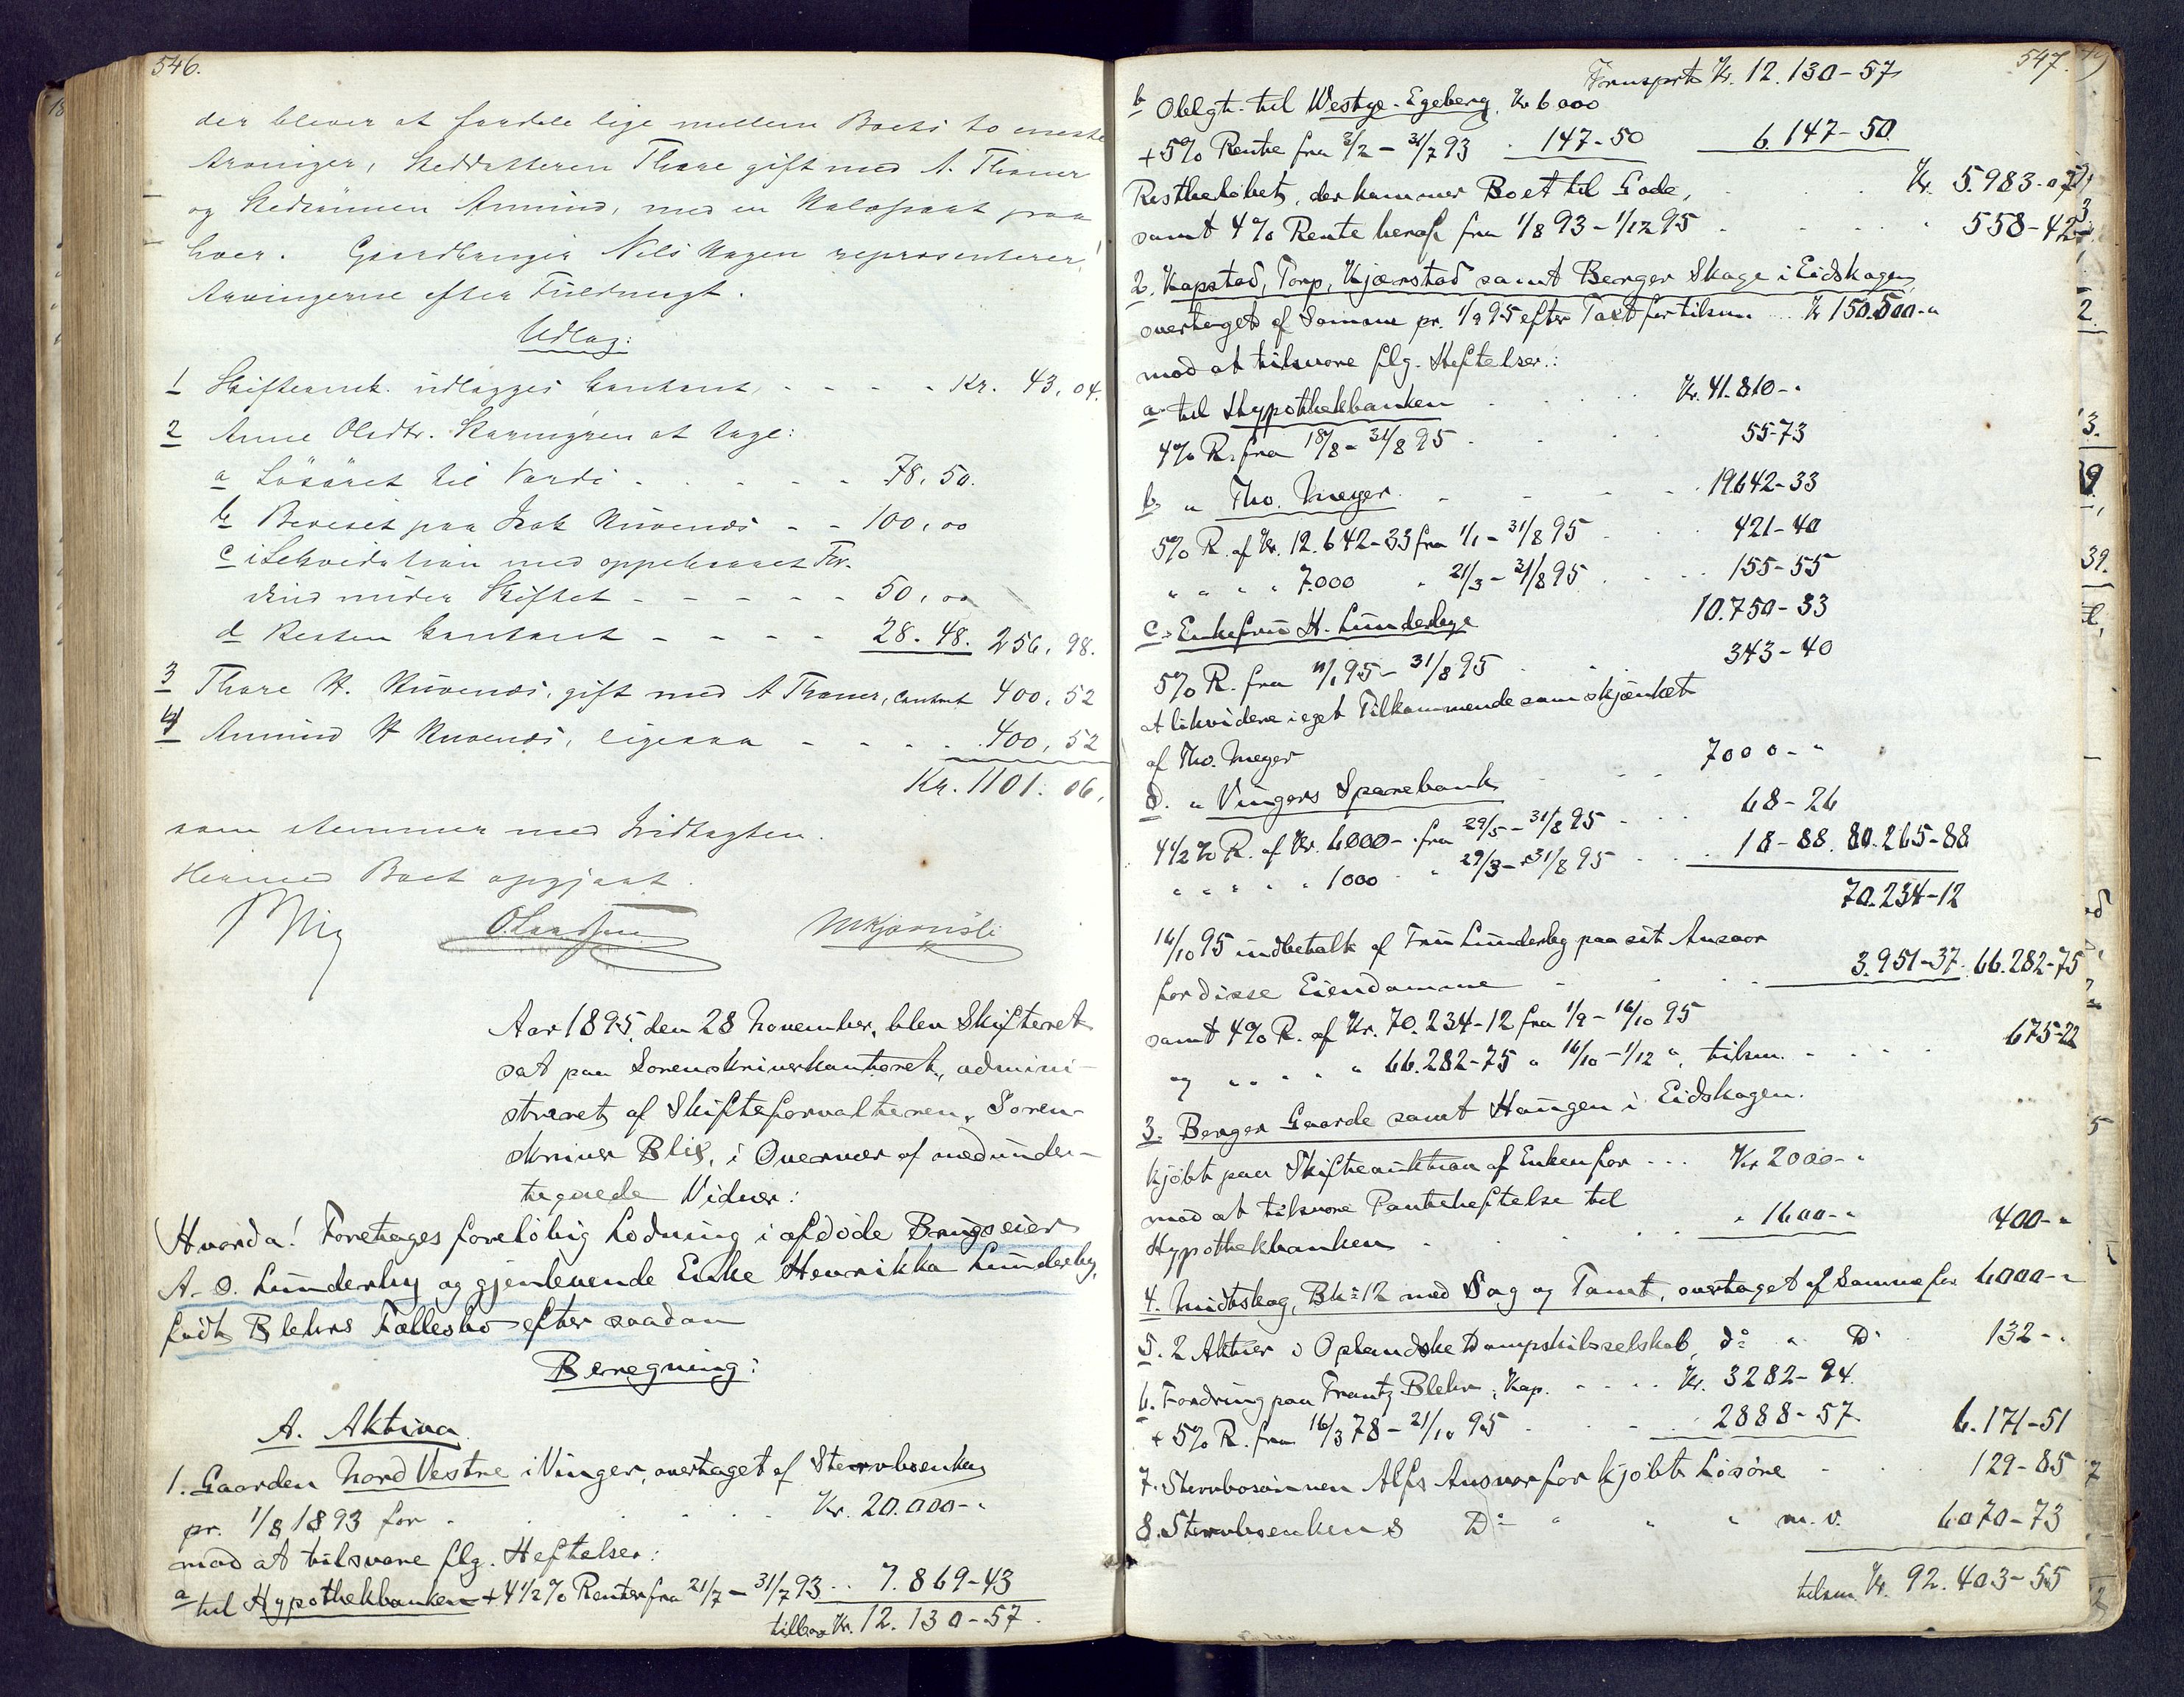 546.
der bliver at fordele lige mellem Boets to eneste
Arvinger, Steddatteren Thore gift med A. Thoner
og Stedsønnen Amund, med en Halvpart paa
hver. Gaardbruger Nils Hagen repræsenterer
Arvingerne efter Fuldmagt.
Udlæg:
1 Skifteomk. udlægges kontant - - - - Kr. 43,04.
2 Anne Olsdtr. at tage:
a Løsøret til Værdi - - - - 78,50.
b Beviset paa - - 100,00
c i Likvidation med oppebaaret For-
skud under Skiftet - - - - - 50,00
d Resten kontant - - - - 28.48. 256,98.
3 Thore H. gift med A Thoner, Contant 400,52
4 Amund H ligesaa - - - - 400,52
Kr. 1101.06.
som stemmer med Indtægten.
Hermed Boet opgjort.
Aar 1895, den 28 November, blev Skifteret
sat paa Sorenskriverkontoret, admini-
streret af Skifteforvalteren, Soren-
skriver i Overvær af medunder-
tegnede Vidner:
Hvorda! Foretages foreløbig Lodning i afdøde Brugseier
A. O. Lunderby og gjenlevende Enke Henrikka Lunderby,
født Blehrs Fællesbo efter saadan
Beregning:
A. Aktiva
1. Gaarden Nord Vestre i Vinger, overtaget af Stervboenken
pr. 1/8 1893 for . . . . . Kr. 20.000-"
mod at tilsvare flg. Heftelser:
a til Hypothekbanken + 4 1/2 % Renter fra 21/7 - 31/7 93 . . 7.869-43
tilbage Kr. 12.130-57.
547.
Transport Kr. 12.130-57
b Obligt. til Westye Egeberg, Kr 6000
+ 5% Rente fra 2/2 - 31/7 93 . 147-50 6.147-50
Restbeløbet, der kommer Boet til Gode, . . . Kr. 5.983-07
samt 4% Rente heraf fra 1/8 93 - 1/12 95 . . . . 558-42
2. Kapstad, Torp, Kjærstad samt Berger Skoge i Eidskogen
overtaget af Samme pr. 1/9 95 efter Taxt for tilsm ... Kr 150.500-"
mod at tilsvare flg. Heftelser:
a til Hypothekbanken . . . . Kr. 41.810-"
4% R. fra 18/8 - 31/8 95 . . . 55-73
b " Tho. Meyer. - - - . 19642-33
5% R. af Kr. 12.642-33 fra 1/1 - 31/8 95 . . 421-40
" " " " 7.000 " 21/3 - 31/8 95 . . . 155-55
c. Enkefru H. Lunderbye 10.750-33
5% R. fra 11/1 95 - 31/8 95 . . 343-40
at likvidere i eget Tilkommende som skjænket
af Tho. Meyer
d. " Vingers Sparebank - - - 7000-"
4 1/2 % R. af Kr. 6000- fra 29/5 - 31/8 95 - . . 68-26
" " " " " 1000 " 29/3 - 31/8 95 . . . 18-88. 80.265-88
70.234-12
16/10 95 indbetalt af Fru Lunderby paa sit Ansvar
for disse Eiendomme - . . 3.951-37. 66.282-75
samt 4% R. af Kr. 70.234-12 fra 1/9 - 16/10 95
og " " " " 66.282-75 " 16/10 - 1/12 ", tilsm. - . . . 675-22
3. Berger Gaarde samt Haugen i Eidskogen.
kjøbt paa Skifteauktion af Enken for ... Kr 2000-"
mod at tilsvare Panteheftelse til
Hypothekbanken - . . . . " 1600-" 400-"
4. Midtskog, Bk: 12 med Sag og Tomt, overtaget af Samme for 6000-"
5. 2 Aktier i Oplandske Dampskibsselskab, do " Do 132-"
6. Fordring paa Frantz Blehr, Kap. - . . . Kr. 3282-94.
+ 5% R. fra 16/3 78 - 21/10 95 . . . 2888-57. 6.171-51
7. Stervbosønnen Alfs Ansvar for kjøbt Løsøre - . . 129-85
8. Stervboenkens Do " " " m. v. 6070-73
tilsm Kr. 92.403-55